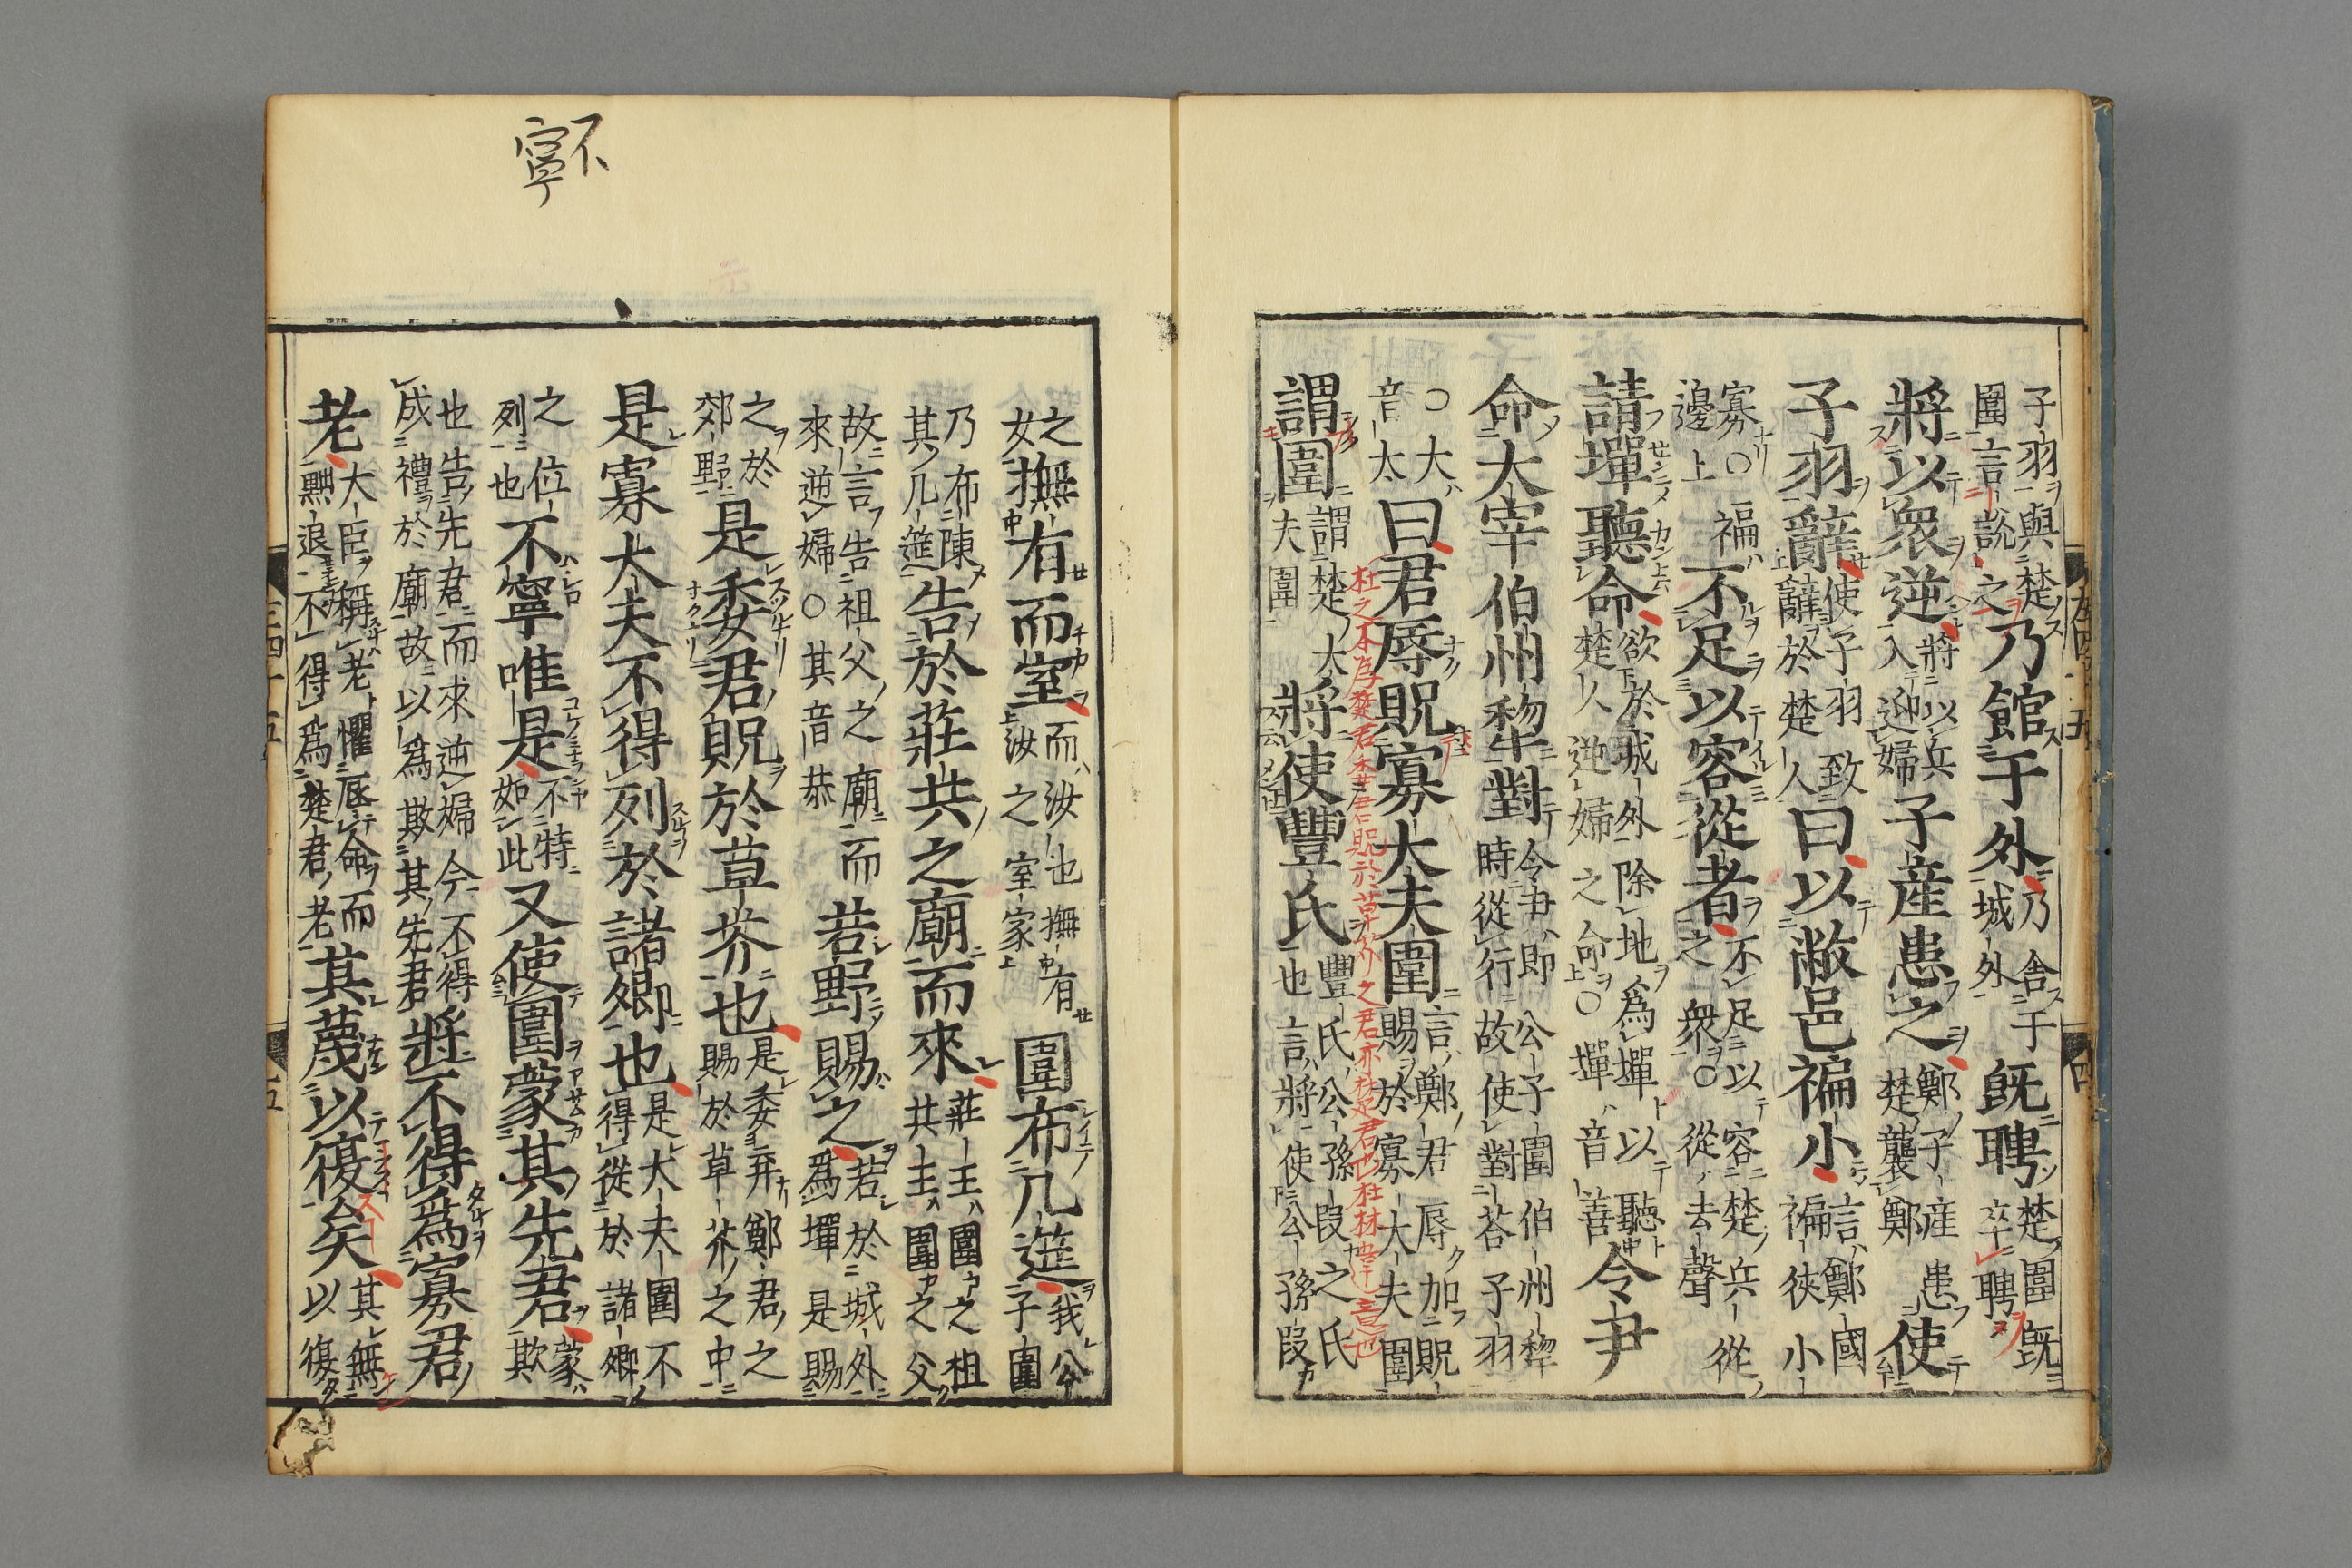 子羽與楚圍言說之乃館于外乃舍于城外既聘楚圍既卒聘
將以衆逆將以兵入迎婦子産患之鄭子産患楚襲鄭使
子羽辭使子羽致辭於楚人曰以敝邑褊小言鄭國褊狹小
寡○褊邊上不足以容從者不足以容楚兵從之衆○從去聲
請墠聽命欲於城外除地爲墠以聽楚人逆婦之命○墠音善令尹
命大宰伯州犂對令尹即公子圍伯州犂時從行故使對荅子羽
○大音太曰君辱貺寡大夫圍言鄭君辱加貺賜於寡大夫圍
謂圍謂楚大夫圍將使豐氏豐氏公孫段之氏也言將使公孫段
不寧
之女撫有而室而汝也撫有汝之室家圍布几筵我公子圍
乃布陳其几筵告於莊共之廟而來莊王圍之祖共主圍之父
故言告祖父之廟而來逆婦○其音恭若野賜之若於城外爲墠是賜
之於郊野是委君貺於草莽也是委棄鄭君之賜於草莽之中
是寡大夫不得列於諸卿也是大夫圍不得從於諸卿
之位列也不寧唯是不特如此又使圍蒙其先君蒙欺
也告先君而來逆婦今不得成禮於廟故以爲欺其先君將不得爲寡君
老大臣稱老懼辱命而黜退不得爲楚君老其蔑以復矣其無以復